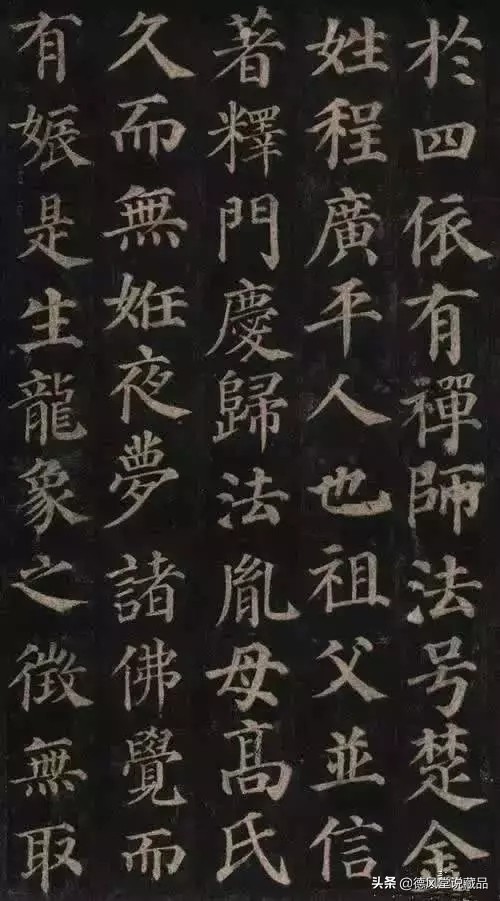 於四依有禪師法号楚金
姓程廣平人也祖父並信
著釋門慶歸法胤母髙氏
久而無姙夜夢諸佛覺而
有娠是生龍象之徵無取
头条 @德风堂晚藏品